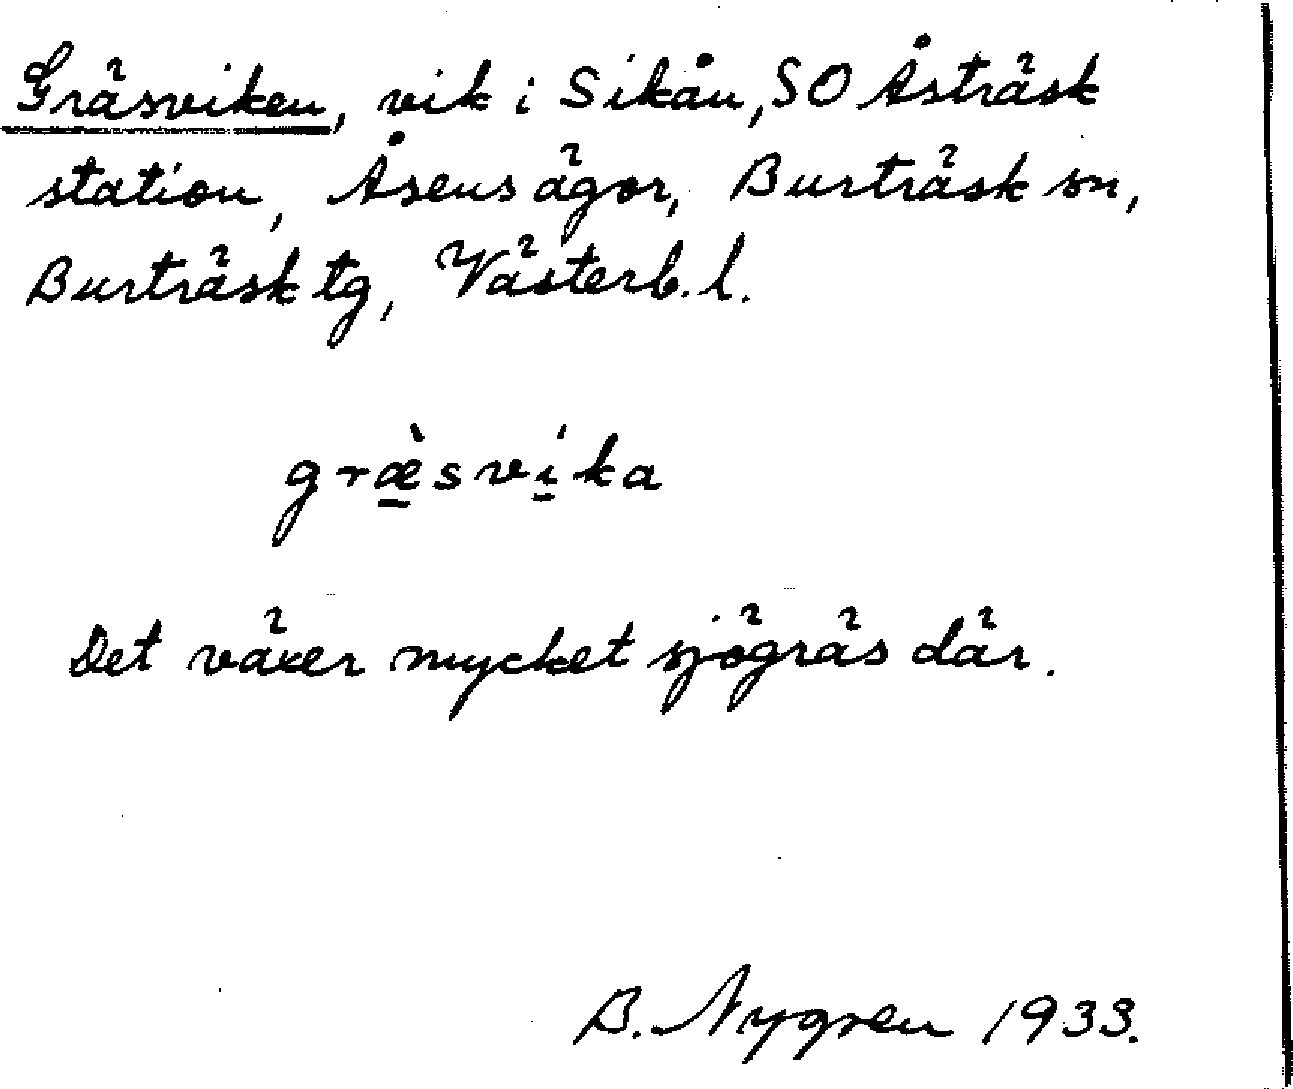 Gräsviken, vik i Sikån, SO Åsträsk
station, Åsens ägor, Burträsk sn,
Burträsk tg, Västerb. l.
græ̱̀sví̱ka
Det växer mycket sjögräs där.
B. Nygren 1933.